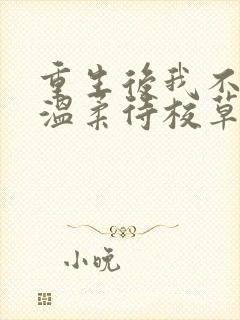 重生後我不
溫柔待校草
小晚